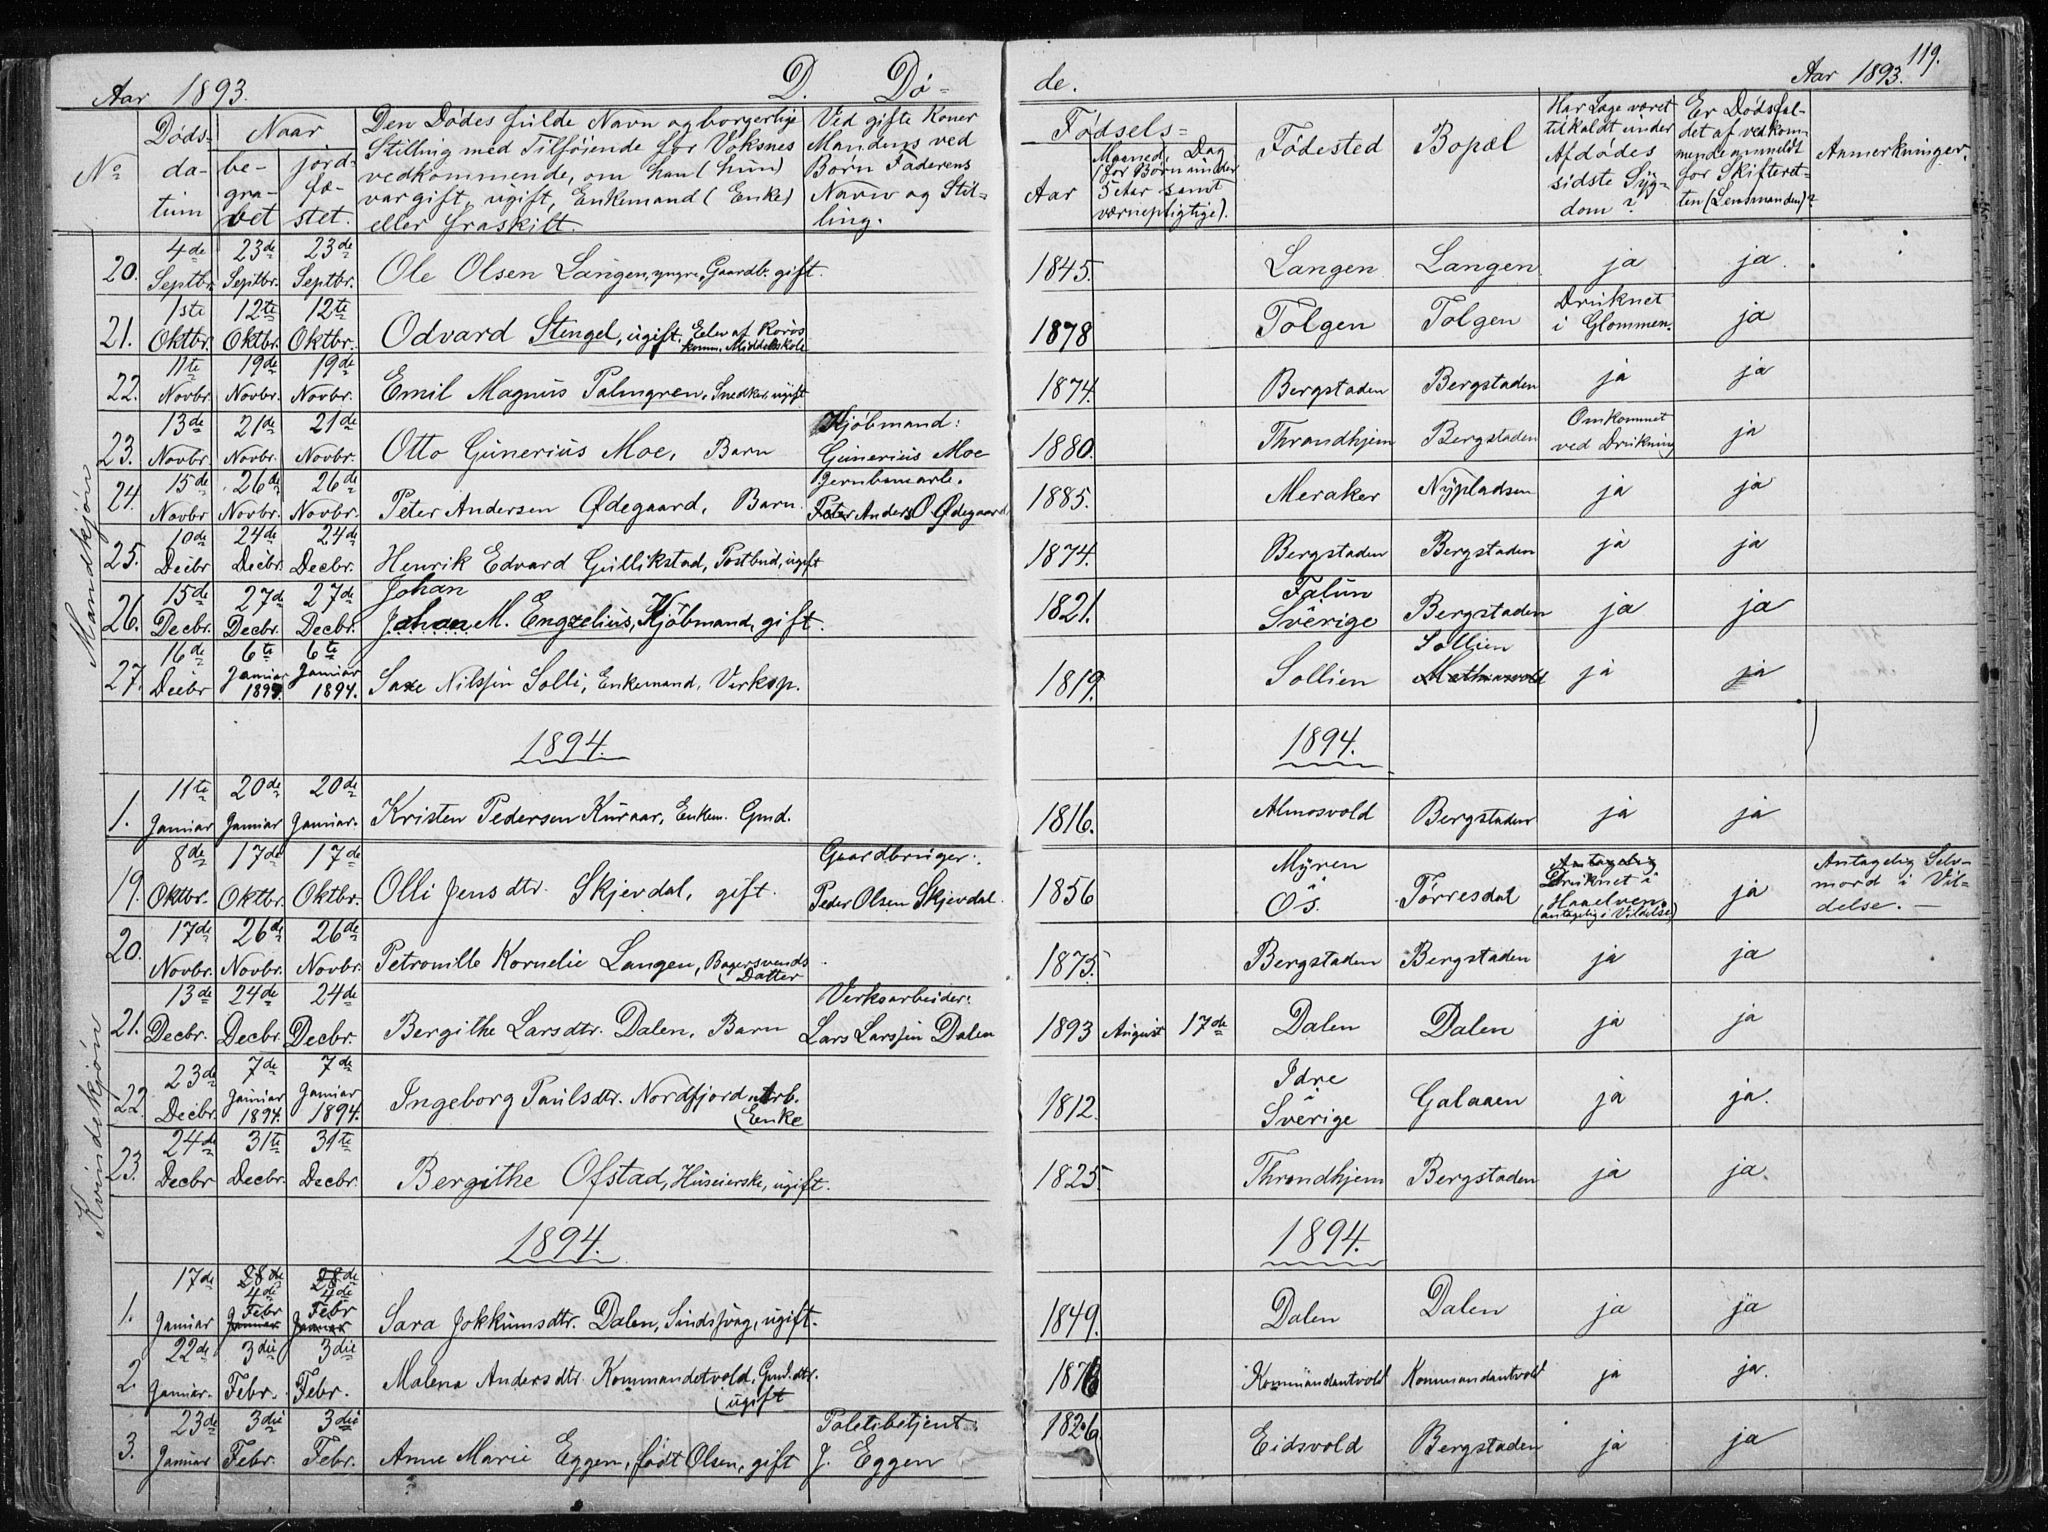 Aar 1893. D. Dø- de. Aar 1893. 119.
No Døds-datum Naar be-gra-vet jord-fæ-stet. Den Dødes fulde Navn og borgerlige Stilling med Tilføiende for Voksnes vedkommende, om han (hun) var gift, ugift, Enkemand (Enke) eller fraskilt. Ved gifte Koner Mandens ved Børn Faderens Navn og Stil-ling. Fødsels= Aar Maaned, Dag (for Børn under 5 Aar samt værnepligtige). Fødested Bopæl Har Læge været tilkaldt under Afdødes sidste Syg-dom? Er Dødsfal-det af vedkom-mende anmeldt for Skifteret-ten (Lensmanden)? Anmerkninger.
Mandkjøn
20. 4de Septbr. 23de Septbr. 23de Septbr. Ole Olsen Langen, yngre, Gaardb. gift. 1845. Langen Langen ja ja.
21. 1ste Oktbr. 12te Oktbr. 12te Oktbr. Odvard Stengel, ugift. Elev af Røros komm. Middelskole 1878 Tolgen Tolgen Druknet i Glommen. ja
22. 11te Novbr. 19de Novbr. 19de Novbr. Emil Magnus Palmgren, Snedker, ugift 1874. Bergstaden Bergstaden ja ja
23. 13de Novbr. 21de Novbr. 21de Novbr. Otto Gunerius Moe, Barn Kjøbmand: Gunerius Moe 1880. Throndhjem Bergstaden Omkommet ved Drukning ja
24. 15de Novbr 26de Novbr. 26de Novbr. Peter Andersen Ødegaard, Barn. Jernbanearb. Peter Anders O Ødegaard 1885. Meraker Nypladsen ja ja
25. 10de Decbr 24de Decbr. 24de Decbr. Henrik Edvard Gullikstad, Postbud, ugift 1874. Bergstaden Bergstaden ja ja
26. 15de Decbr. 27de Decbr. 27de Decbr. Johan Johan M. Engzelius, Kjøbmand, gift. 1821. Falun Sverige Bergstaden ja ja
27. 16de Decbr 6te Januar 1894. 6te Januar 1894. Saxe Nilssen Solli, Enkemand, Verksp. 1819. Sollien Sollien ja ja
1894. 1894.
1. 11te Januar 20de Januar 20de Januar. Kristen Pedersen Kuraas, Enkem. Gmd. 1816. Almosvold Bergstaden ja ja
Kvindekjøn
19. 8de Oktbr. 17de Oktbr. 17de Oktbr. Olli Jensdtr. Skjevdal, gift. Gaardbruger: Peder Olsen Skjevdal. 1856 Myren Øs. Torresdal Antagelig Druknet i Haaelven. (antagelig i Vildelse) ja Antagelig Selv-mord i Vil-delse. —
20. 17de Novbr. 26de Novbr. 26de Novbr. Petronille Kornelie Langen, Bagersvends Datter 1875. Bergstaden Bergstaden ja ja
21. 13de Decbr. 24de Decbr. 24de Decbr. Bergithe Larsdtr. Dalen, Barn Verksarbeider: Lars Larssen Dalen 1893 August 17de Dalen Dalen ja ja
22. 23de Decbr 7de Januar 1894. 7de Januar 1894. Ingeborg Paulsdtr. Nordfjord Arb. Enke 1812. Idre Sverige Galaaen ja ja.
23. 24de Decbr 31te Decbr. 31te Decbr. Bergithe Ofstad, Huseierske, ugift. 1825. Throndhjem Bergstaden ja ja.
1894. 1894.
1. 17de Januar 28de 4de Febr Januar 28de 4de Febr Januar Sara Jokkumsdtr. Dalen, Sindssvag, ugift. 1849. Dalen Dalen ja ja
2. 22de Januar. 3die Febr. 3die Febr. Malena Andersdtr. Kommandetvold, Gmd.dtr. ugift Kommandantvold Kommandantvold ja ja.
3. 23de Januar 3die Febr. 3die Febr. Anne Marie Eggen, født Olsen, gift Politibetjent J. Eggen 1826 Eidsvold Bergstaden ja ja